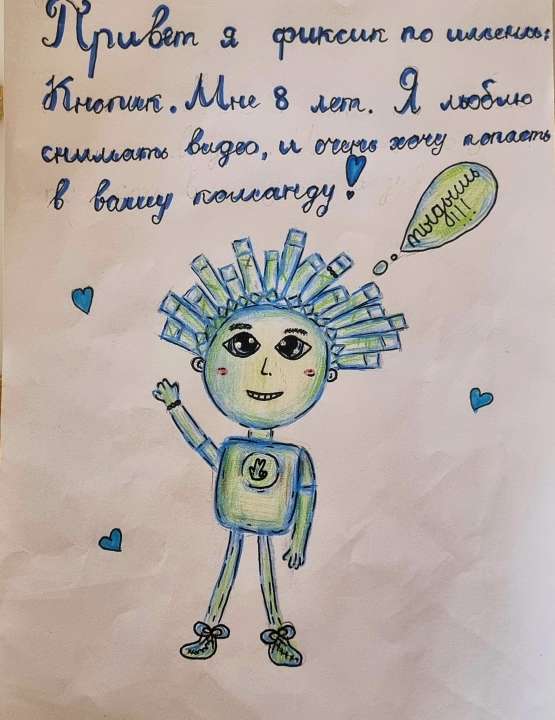 Привет я фиксик по имени:
Кнопик. Мне 8 лет. Я люблю
снимать видео, и очень хочу попасть
в вашу команду!
тыдыщь
!!!!